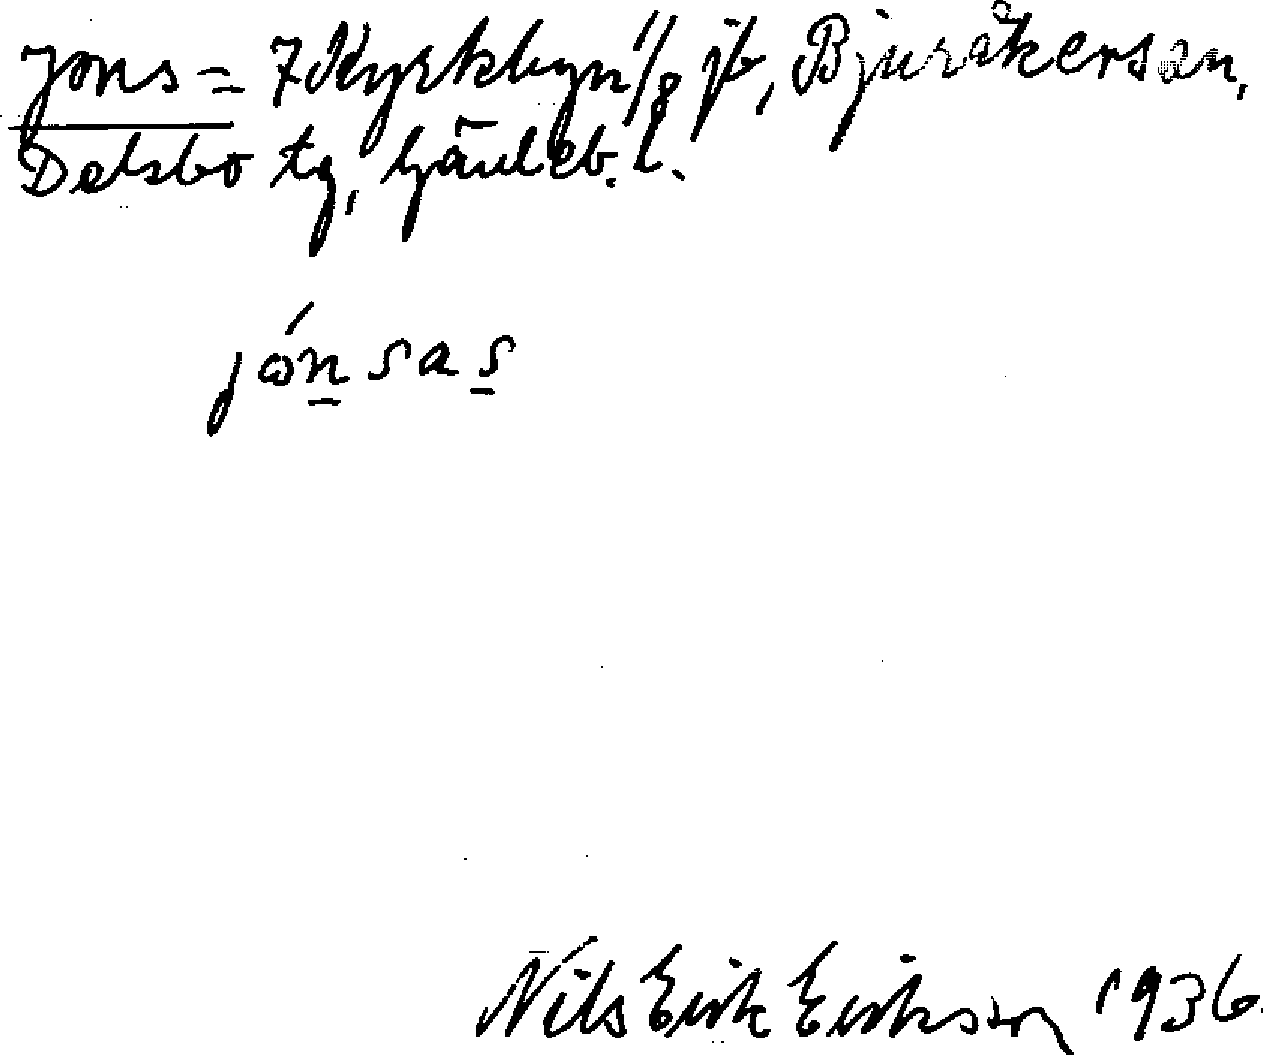 Jons = 7 Kyrkbyn 1/8 jb, Bjuråkers sn,
Delsbo tg, Gävleb. l.
jónsas
Nils Erik Eriksson 1936.